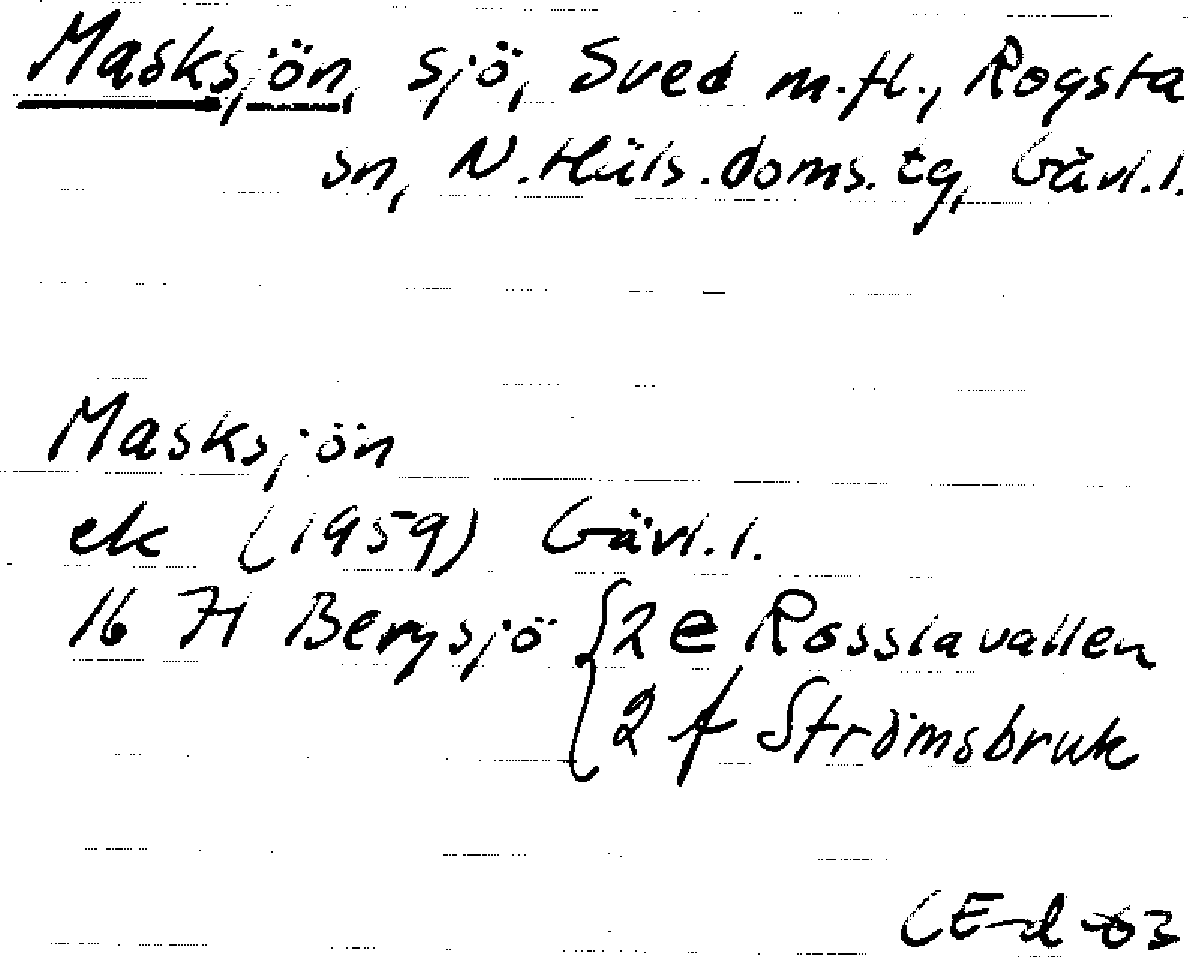 Masksjön, sjö, Sved m.fl., Rogsta
sn, N.Häls.doms.tg, Gävl.l.
Masksjön
ek (1959) Gävl.l.
16 H Bergsjö { 2 e Rosslavallen
2 f Strömsbruk